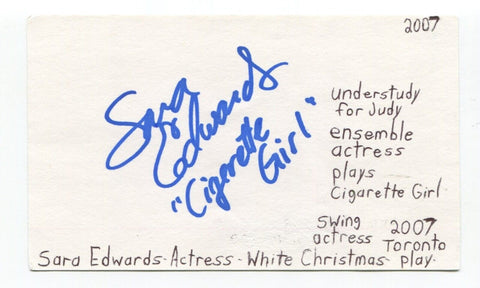 2007
Sara
Edwards
"Cigarette
Girl"
understudy
for Judy
ensemble
actress
plays
Cigarette Girl
swing
actress
2007
Toronto
Sara Edwards-Actress-White Christmas play.